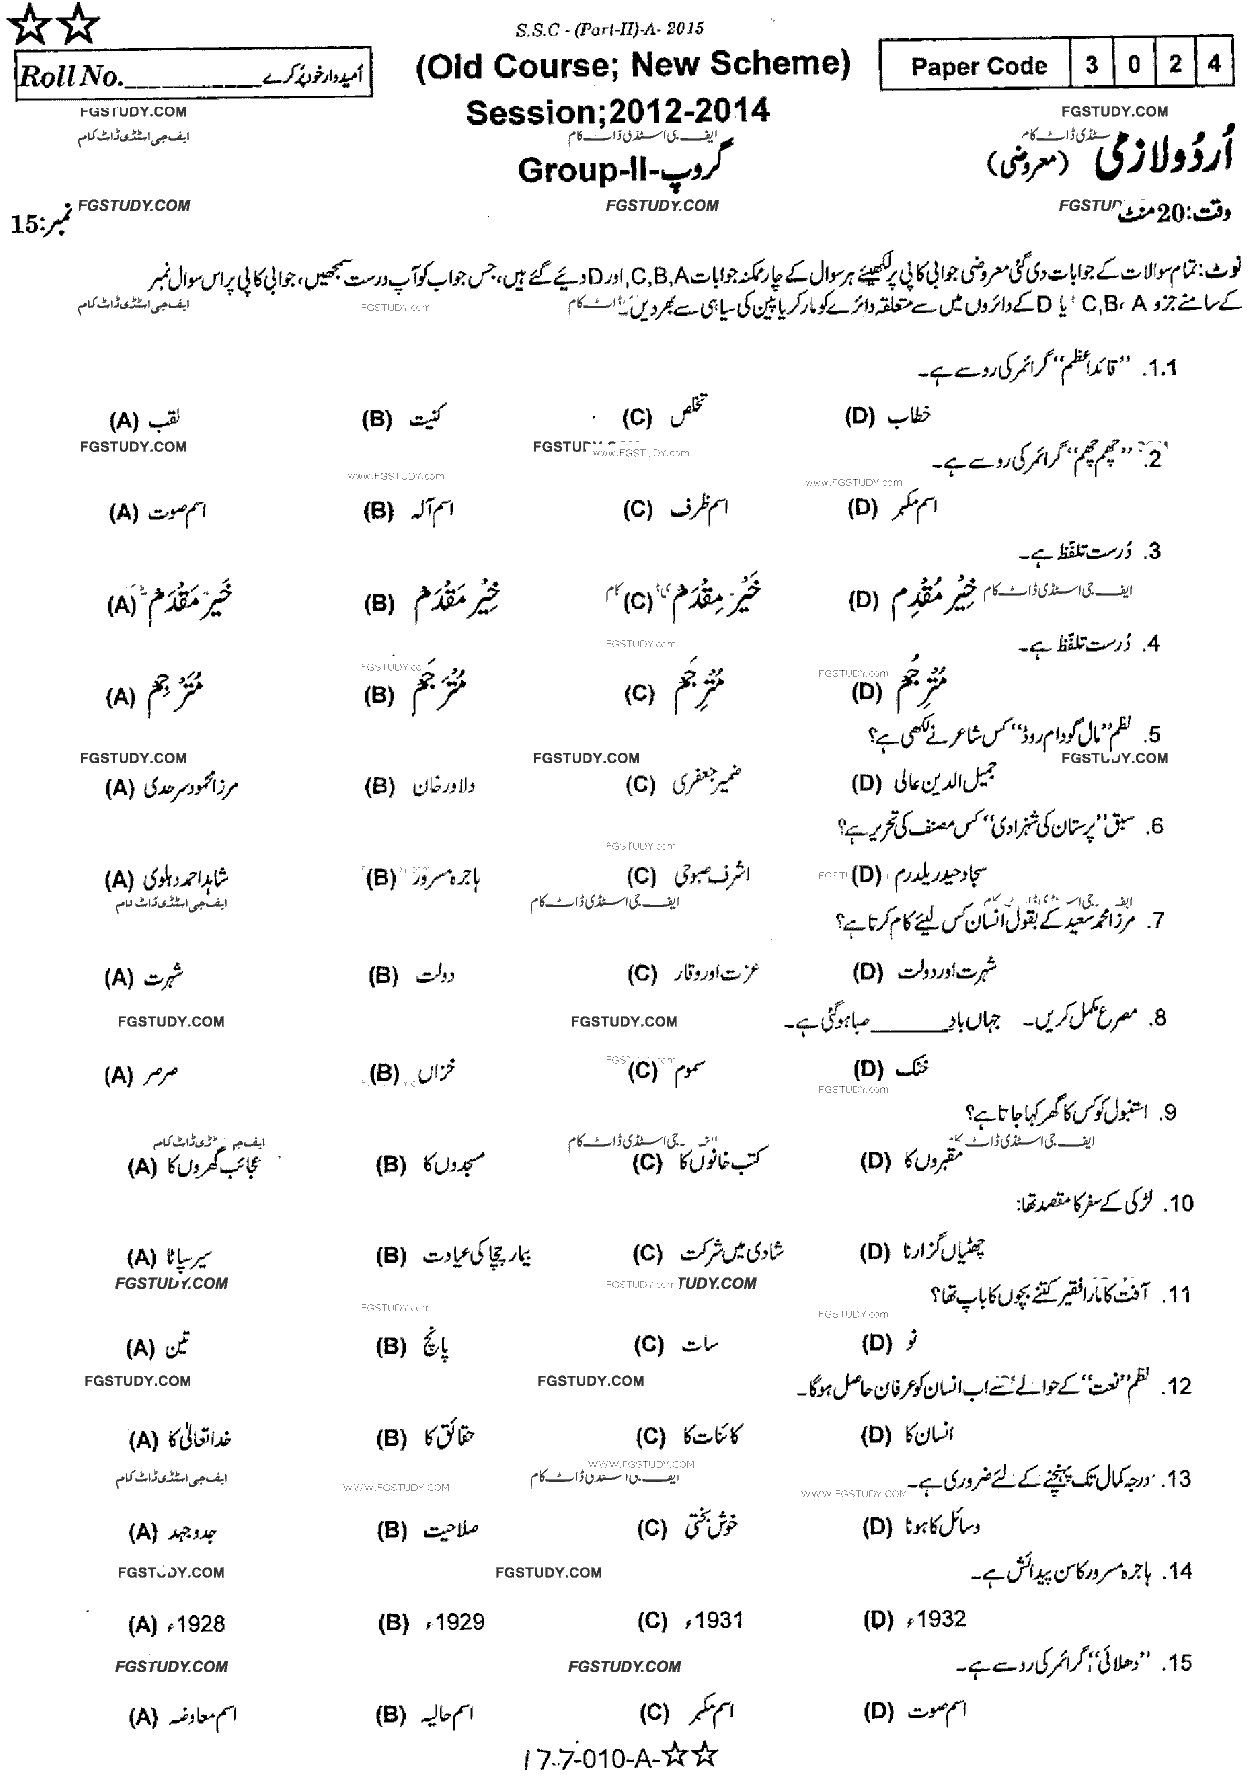 S.S.C - (Part-II)-A- 2015
Roll No.____________ اُمیدوار خود پُر کرے
(Old Course; New Scheme)
Paper Code 3 0 2 4
FGSTUDY.COM FGSTUDY.COM
Session;2012-2014
ایف جی اسٹڈی ڈاٹ کام
اُردُو لازمی (معروضی)
Group-II-گروپ
FGSTUDY.COM FGSTUDY.COM
وقت:20 منٹ
نمبر:15
نوٹ: تمام سوالات کے جوابات دی گئی معروضی جوابی کاپی پر لکھیئے ہر سوال کے چار ممکنہ جوابات C,B,A اور D دیئے گئے ہیں، جس جواب کو آپ درست سمجھیں، جوابی کاپی پر اس سوال نمبر
کے سامنے جزو A ،C,B یا D کے دائروں میں سے متعلقہ دائرے کو مارکر یا پین کی سیاہی سے بھر دیں
1.1. "قائداعظم" گرائمر کی رو سے ہے۔
(A) لقب (B) کنیت (C) تخلص (D) خطاب
FGSTUDY.COM
2. "چھم چھم" گرائمر کی رو سے ہے۔
(A) اسم صوت (B) اسم آلہ (C) اسم ظرف (D) اسم مکبر
3. دُرست تلفّظ ہے۔
(A) خَیر مَقْدَم (B) (C) (D)
4. دُرست تلفّظ ہے۔
(A) (B) (C) (D)
5. نظم "مال گودام روڈ" کس شاعر نے لکھی ہے؟
FGSTUDY.COM FGSTUDY.COM FGSTUDY.COM
(A) مرزا محمود سرحدی (B) دلاور خان (C) ضمیر جعفری (D) جمیل الدین عالی
6. سبق "پرستان کی شہزادی" کس مصنف کی تحریر ہے؟
(A) شاہد احمد دہلوی (B) ہاجرہ مسرور (C) اشرف صبوحی (D) سجاد حیدر یلدرم
7. مرزا محمد سعید کے بقول انسان کس لیئے کام کرتا ہے؟
(A) شہرت (B) دولت (C) عزت اور وقار (D) شہرت اور دولت
8. مصرع مکمل کریں۔ جہاں بادِ ________ صبا ہو گئی ہے۔
FGSTUDY.COM FGSTUDY.COM
(A) صرصر (B) خزاں (C) سموم (D) خنک
9. استنبول کو کس کا گھر کہا جاتا ہے؟
(A) عجائب گھروں کا (B) مسجدوں کا (C) کتب خانوں کا (D) مقبروں کا
10. لڑکی کے سفر کا مقصد تھا:
(A) سیر سپاٹا (B) بیمار چچا کی عیادت (C) شادی میں شرکت (D) چھٹیاں گزارنا
FGSTUDY.COM
11. آفت کا مارا فقیر کتنے بچوں کا باپ تھا؟
(A) تین (B) پانچ (C) سات (D) نو
FGSTUDY.COM FGSTUDY.COM
12. نظم "نعت" کے حوالے سے اب انسان کو عرفان حاصل ہوگا۔
(A) خدا تعالیٰ کا (B) حقائق کا (C) کائنات کا (D) انسان کا
13. درجہ کمال تک پہنچنے کے لئے ضروری ہے۔
(A) جدوجہد (B) صلاحیت (C) خوش بختی (D) وسائل کا ہونا
14. ہاجرہ مسرور کا سن پیدائش ہے۔
FGSTUDY.COM FGSTUDY.COM
(A) 1928ء (B) 1929ء (C) 1931ء (D) 1932ء
15. "دھلائی" گرائمر کی رو سے ہے۔
FGSTUDY.COM FGSTUDY.COM
(A) اسم معاوضہ (B) اسم حالیہ (C) اسم مکبر (D) اسم صوت
177-010-A-☆☆